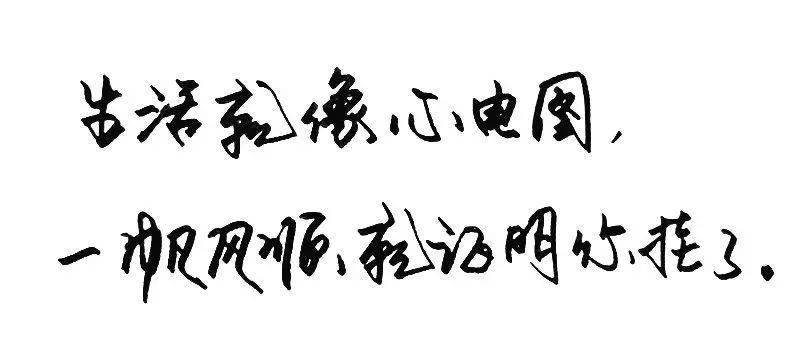 生活就像心电图,
一帆风顺、就证明你挂了。